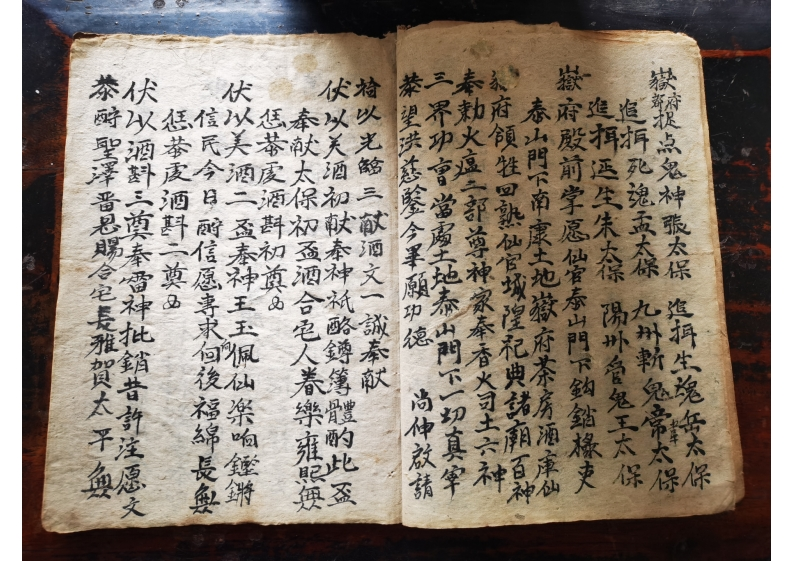 嶽府提点鬼神張太保 追捉生魂岳太保
追捉死魂孟太保 九州斬鬼帝太保
追捉逐生朱太保 陽州管鬼王太保
嶽府殿前掌愿仙官泰山門下鈎銷椽吏
泰山門下南康土地嶽府茶房酒庫仙
府領牲回熟仙官城隍祀典諸廟百神
奉勅火瘟二部尊神家奉香火司土六神
三界功曹當處土地泰山門下一切真宰
恭望洪慈鑒今畢願功德 尚伸啟請
三獻酒文一誠奉献
伏以美酒初献奉神祇酪鐏簿醴酌此盃
奉献太保初盃酒合宅人眷樂雍熙無
恁恭虔酒斟初奠
伏以美酒二盃奉神王玉佩仙樂响鏗鏘
信民今日酧信愿專求向後福綿長無
恁恭虔酒斟二奠
伏以酒斟三奠奉雷神批銷昔許注愿文
恭酧聖澤番恩賜合宅長雅賀太平無